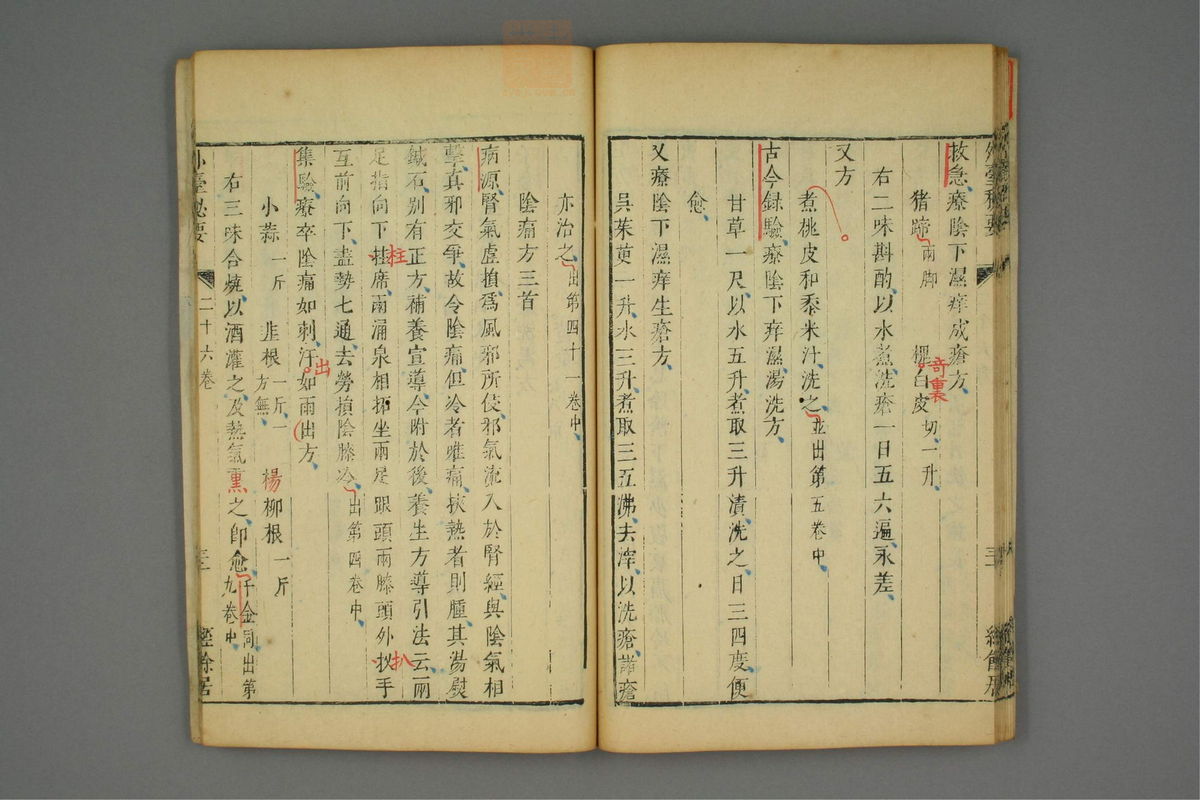 外臺秘要
三
經餘居
救急療陰下濕痒成瘡方
猪蹄兩脚 櫸白皮切一升
奇裏
右二味斟酌以水煮洗瘡一日五六遍永差
又方
煮桃皮和黍米汁洗之並出第五卷中
古今録驗療陰下痒濕湯洗方
甘草一尺以水五升煮取三升漬洗之日三四度便
愈
又療陰下濕痒生瘡方
吳茱萸一升水三升煮取三五沸去滓以洗瘡諸瘡
亦治之出第四十一卷中
陰痛方三首
病源腎氣虛損爲風邪所侵邪氣流入於腎經與陰氣相
擊真邪交爭故令陰痛但冷者唯痛挾熱者則腫其湯熨
鍼石别有正方補養宣導今附於後養生方導引法云兩
足指向下拄席兩涌泉相拓坐兩足跟頭兩膝頭外扒手
柱
扒
互前向下盡勢七通去勞損陰膝冷出第四卷中
集驗療卒陰痛如刺汗如雨出方
出
小蒜一斤 韭根一斤一方無 楊柳根一斤
右三味合燒以酒灌之及熱氣熏之即愈千金同出第九卷中
外臺秘要
二十六卷
三
經餘居